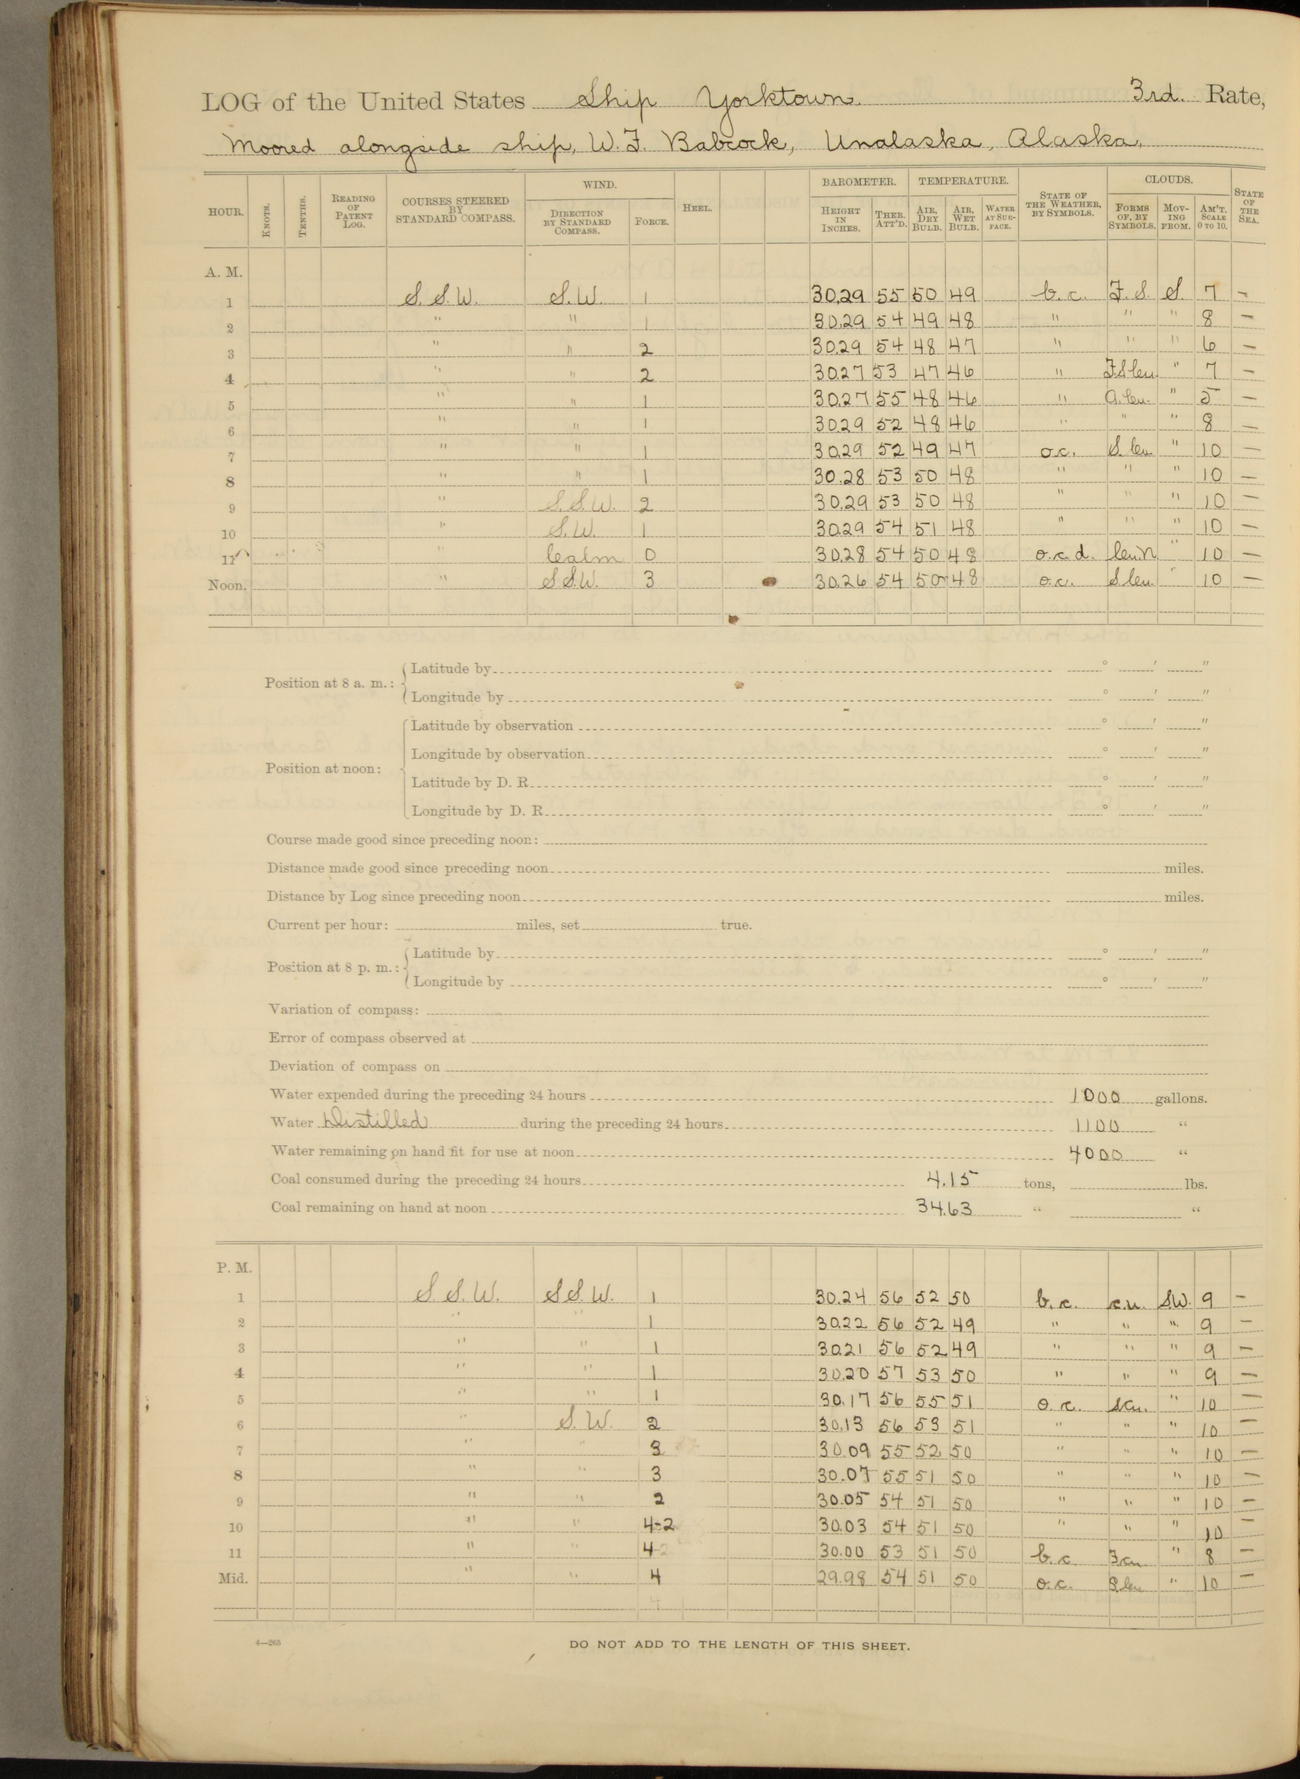 LOG of the United States Ship Yorktown 3rd. Rate,
Moored alongside ship, W. F. Babcock, Unalaska, Alaska,
HOUR. KNOTS. TENTHS. READING OF PATENT LOG. COURSES STEERED BY STANDARD COMPASS. WIND. DIRECTION BY STANDARD COMPASS. FORCE. HEEL. BAROMETER. HEIGHT IN INCHES. THER. ATT'D. TEMPERATURE. AIR, DRY BULB. AIR, WET BULB. WATER AT SURFACE. STATE OF THE WEATHER, BY SYMBOLS. CLOUDS. FORMS OF, BY SYMBOLS. MOVING FROM. AM'T. SCALE 0 TO 10. STATE OF THE SEA.
A. M.
1 S. S. W. S. W. 1 30.29 55 50 49 b. c. F. S. S. 7 –
2 " " 1 30.29 54 49 48 " " " 8 –
3 " " 2 30.29 54 48 47 " " " 6 –
4 " " 2 30.27 53 47 46 " F.S.cu. " 7 –
5 " " 1 30.27 55 48 46 " a.cu. " 5 –
6 " " 1 30.29 52 48 46 " " " 8 –
7 " " 1 30.29 52 49 47 o.c. S. cu " 10 –
8 " " 1 30.28 53 50 48 " " " 10 –
9 " S. S. W. 2 30.29 53 50 48 " " " 10 –
10 " S. W. 1 30.29 54 51 48 " " " 10 –
11 " Calm 0 30.28 54 50 48 o.c.d. cu.N " 10 –
Noon. " S.S.W. 3 30.26 54 50 48 o.c. S.cu. " 10 –
Position at 8 a. m.: Latitude by ° ′ ″
Longitude by ° ′ ″
Position at noon: Latitude by observation ° ′ ″
Longitude by observation ° ′ ″
Latitude by D. R. ° ′ ″
Longitude by D. R. ° ′ ″
Course made good since preceding noon:
Distance made good since preceding noon miles.
Distance by Log since preceding noon miles.
Current per hour: miles, set true.
Position at 8 p. m.: Latitude by ° ′ ″
Longitude by ° ′ ″
Variation of compass:
Error of compass observed at
Deviation of compass on
Water expended during the preceding 24 hours 1000 gallons.
Water Distilled during the preceding 24 hours 1100 "
Water remaining on hand fit for use at noon 4000 "
Coal consumed during the preceding 24 hours 4.15 tons, lbs.
Coal remaining on hand at noon 34.63 " "
P. M.
1 S. S. W. S.S. W. 1 30.24 56 52 50 b. c. c.u. S.W. 9 –
2 " " 1 30.22 56 52 49 " " " 9 –
3 " " 1 30.21 56 52 49 " " " 9 –
4 " " 1 30.20 57 53 50 " " " 9 –
5 " " 1 30.17 56 55 51 o. c. s.cu. " 10 –
6 " S. W. 2 30.13 56 53 51 " " " 10 –
7 " " 3 30.09 55 52 50 " " " 10 –
8 " " 3 30.07 55 51 50 " " " 10 –
9 " " 2 30.05 54 51 50 " " " 10 –
10 " " 4-2 30.03 54 51 50 " " " 10 –
11 " " 4-2 30.00 53 51 50 b. c. F.cu " 8 –
Mid. " " 4 29.98 54 51 50 o.c. S.cu " 10 –
4—265
DO NOT ADD TO THE LENGTH OF THIS SHEET.